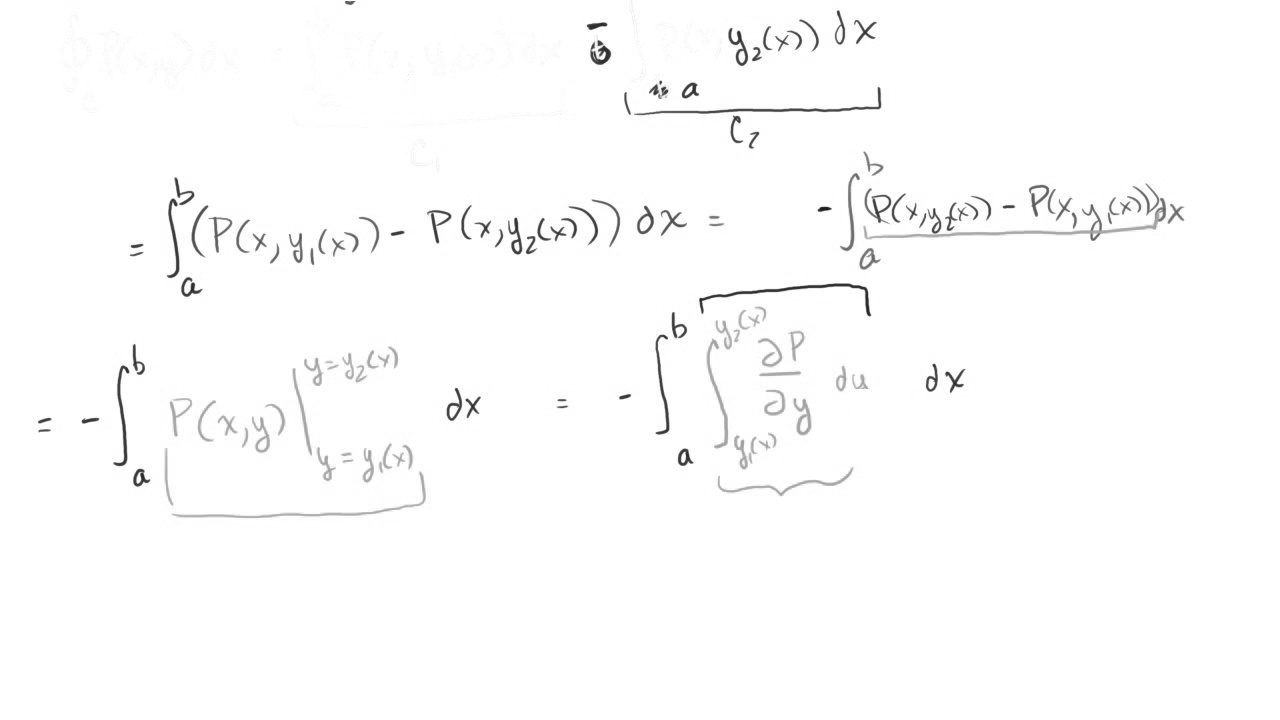 ∮_c P(x,y) dx = ∫ P(x, y₁(x)) dx ∫ P(x, y₂(x)) dx
a
C₁ C₂
= ∫_a^b (P(x, y₁(x)) - P(x, y₂(x))) dx = - ∫_a^b (P(x, y₂(x)) - P(x, y₁(x))) dx
= - ∫_a^b P(x,y) |_{y = y₁(x)}^{y = y₂(x)} dx = - ∫_a^b ∫_{y₁(x)}^{y₂(x)} ∂P/∂y du dx